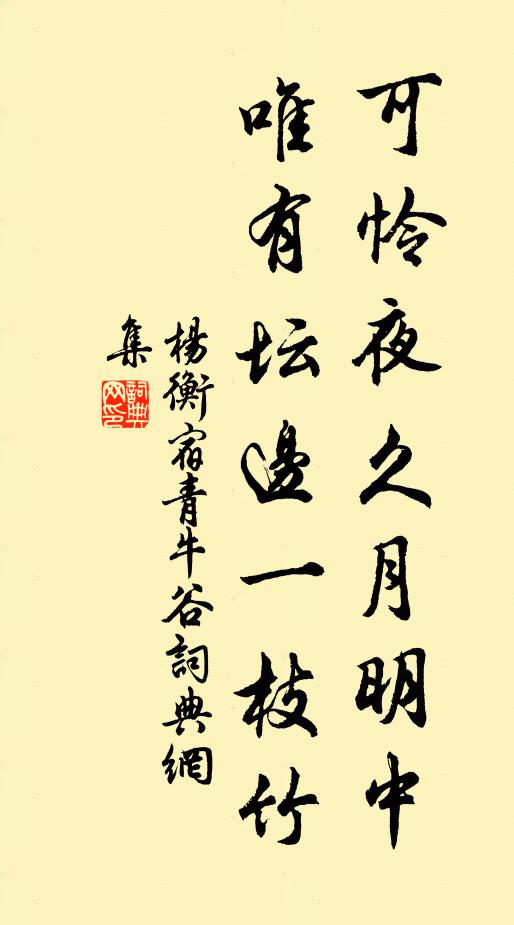 可怜夜久月明中
唯有坛邊一枝竹
楊衡宿青牛谷詞典網
集
詞典网印